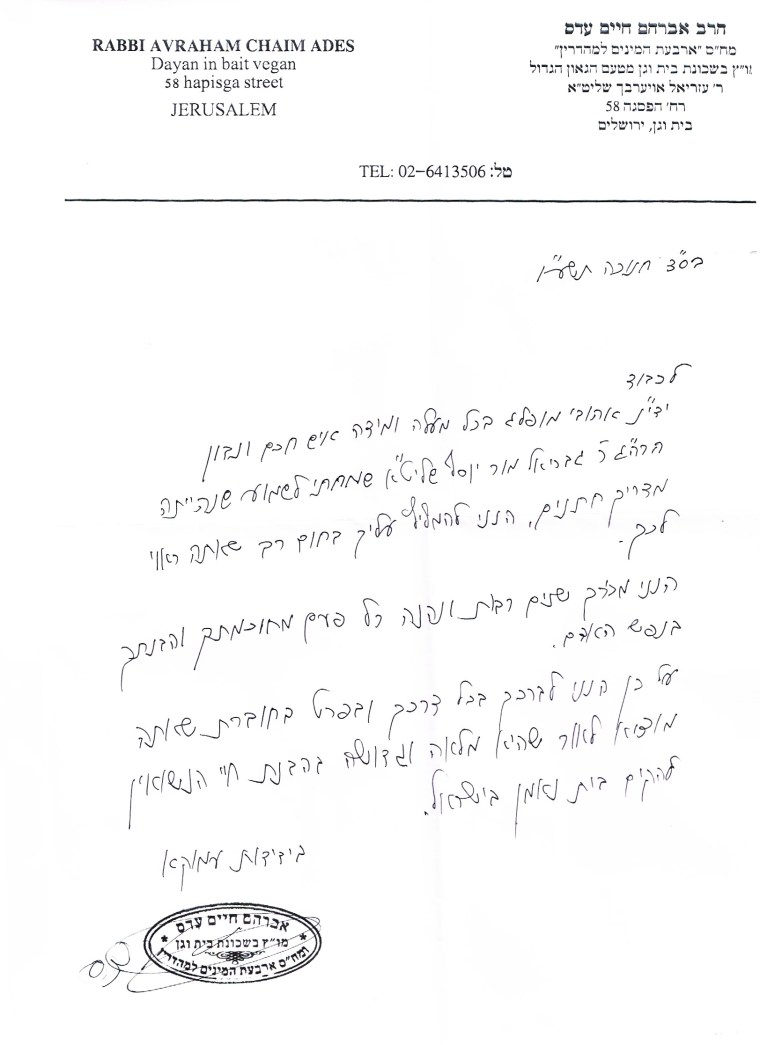 RABBI AVRAHAM CHAIM ADES
Dayan in bait vegan
58 hapisga street
JERUSALEM
הרב אברהם חיים עדס
מח״ס ״ארבעת המינים למהדרין״
מו״ץ בשכונת בית וגן מטעם הגאון הגדול
ר׳ עזריאל אויערבך שליט״א
רח׳ הפסגה 58
בית וגן, ירושלים
TEL: 02-6413506 :טל
בס״ד חנוכה
לכבוד
ידי״נ אהובי מופלג בכל מעלה ומידה איש חכם ונבון
הרה״ג ר׳ גבריאל מור יוסף שליט״א שמחתי לשמוע שנהייתה
מדריך חתנים, הנני להמליץ עליך בחום רב שאתה ראוי
לכך.
הנני מכירך שנים רבות ונהנה כל פעם מחוכמתך והבנתך
בנפש האדם.
על כן הנני לברכך בכל דרכך ובפרט בחוברת שאתה
מוציא לאור שהיא מלאה וגדושה בהבנת חיי הנישואין
להקים בית נאמן בישראל.
בידידות עמוקא
אברהם חיים עדס
מו״ץ בשכונת בית וגן
ומח״ס ארבעת המינים למהדרין